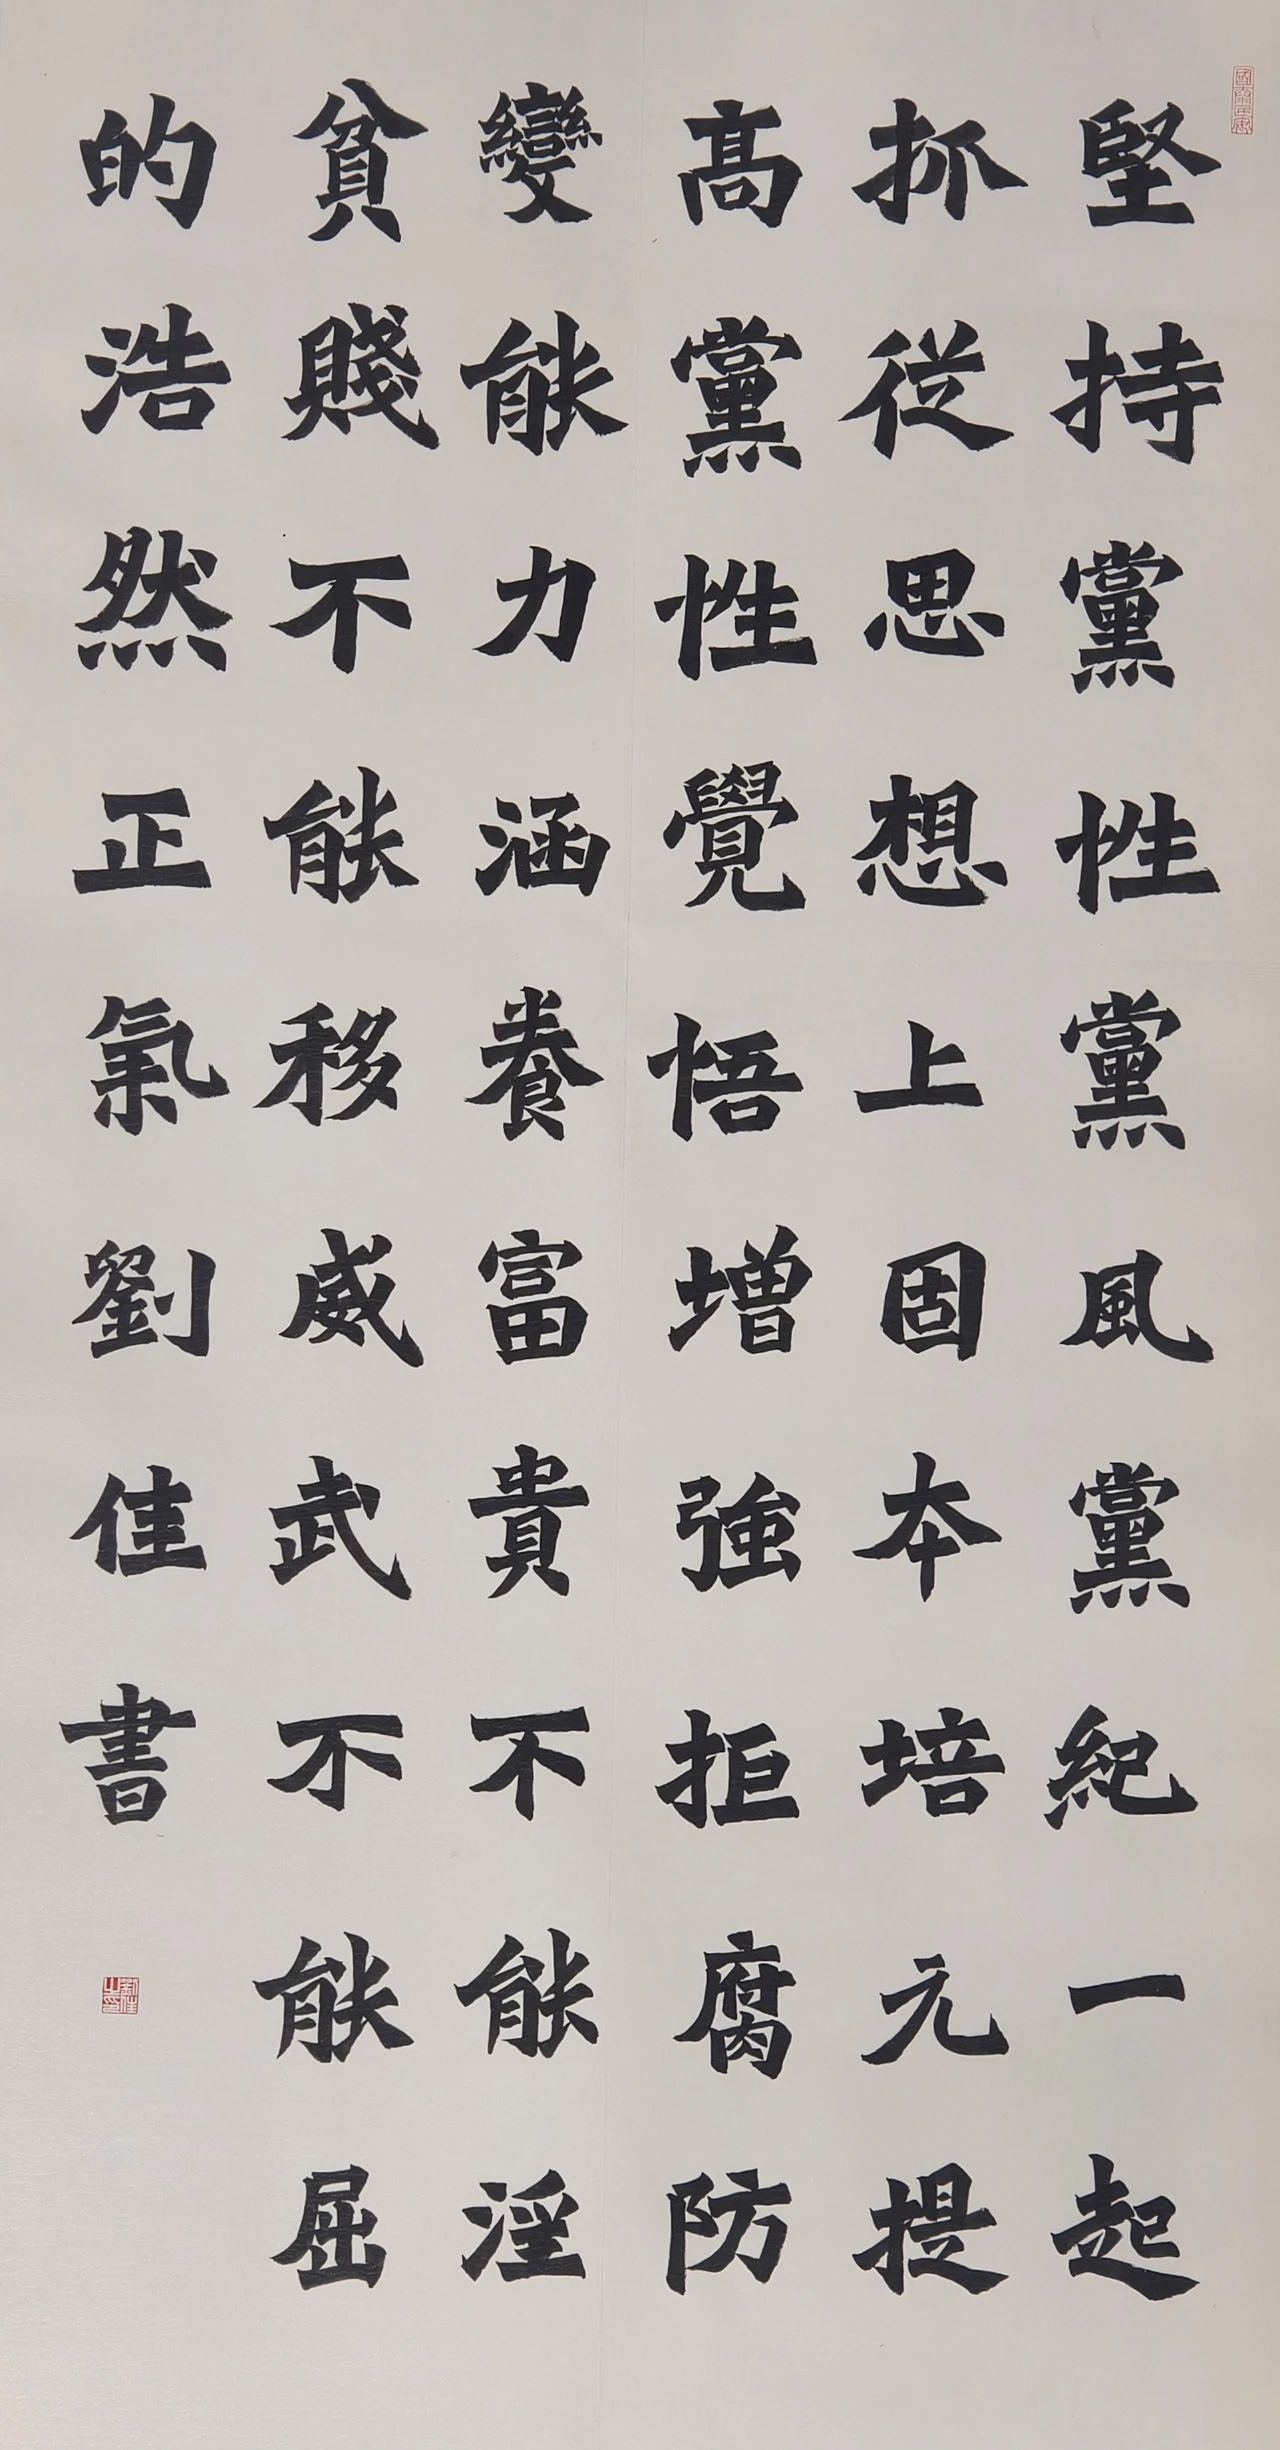 堅持黨性黨風黨紀一起
抓從思想上固本培元提
高黨性覺悟增強拒腐防
變能力涵養富貴不能淫
貧賤不能移威武不能屈
的浩然正氣劉佳書
劉佳之印